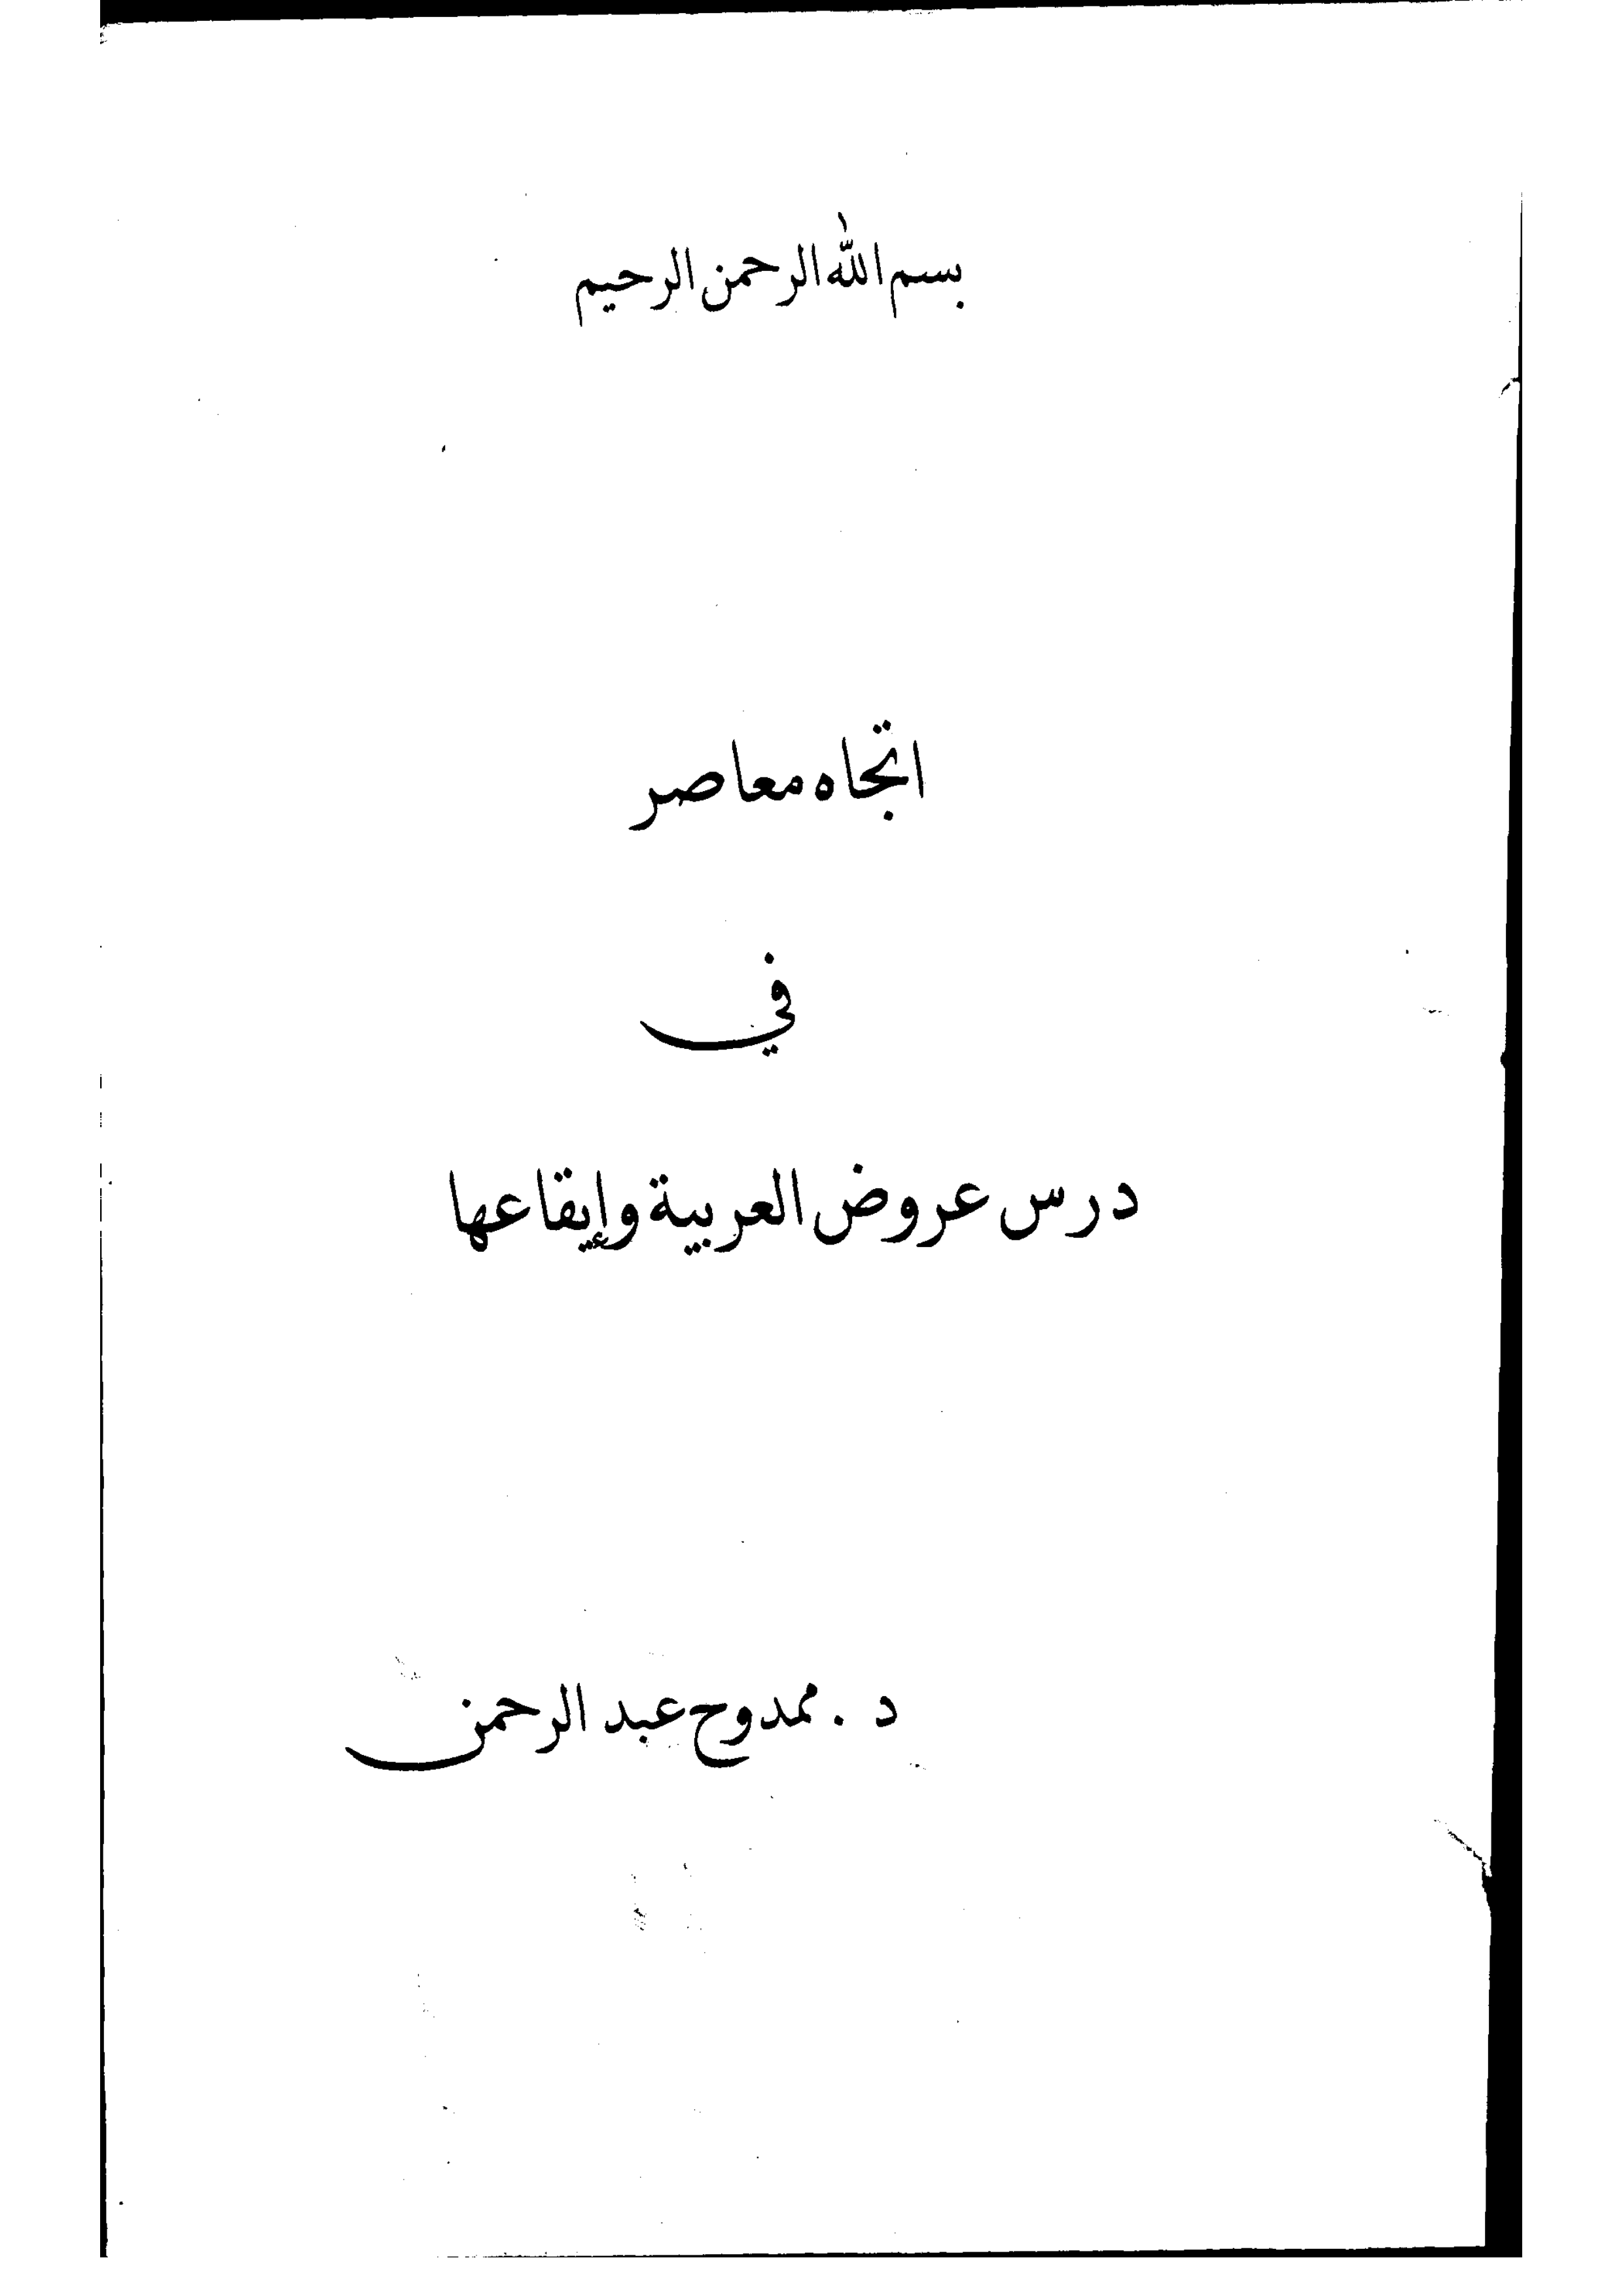 بسم الله الرحمن الرحيم
اتجاه معاصر
في
درس عروض العربية وإيقاعها
د . ممدوح عبد الرحمن